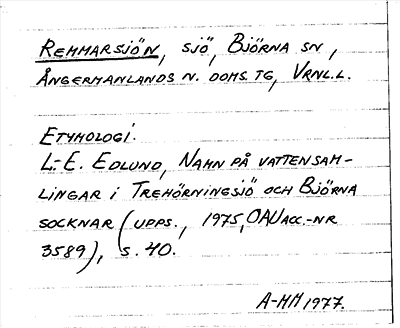 REMMARSJÖN, SJÖ, BJÖRNA SN,
ÅNGERMANLANDS N. DOMS. TG, VRNL.L.
ETYMOLOGI.
L.-E. EDLUND, NAMN PÅ VATTENSAM-
LINGAR I TREHÖRNINGSJÖ OCH BJÖRNA
SOCKNAR (UPPS., 1975, OAU ACC.-NR
3589), S. 40.
A-MH 1977.